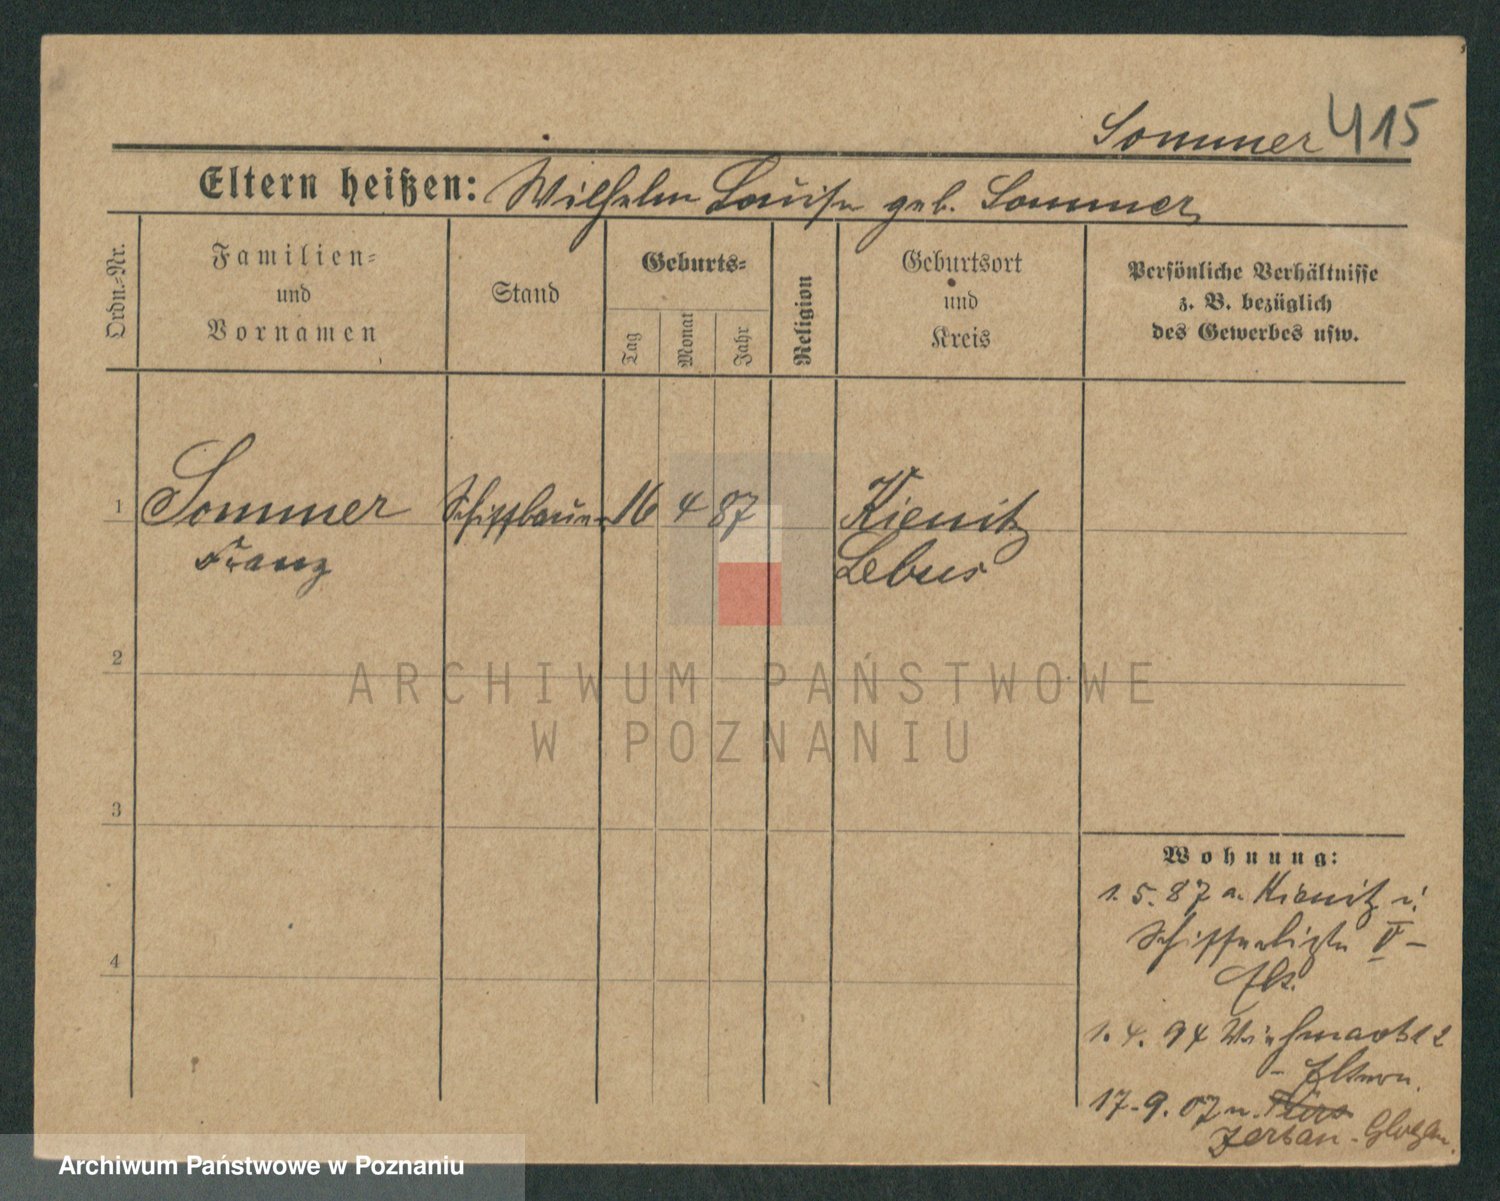 Sommer 415
Eltern heißen: Wilhelm Louise geb. Sommer
Ordn.-Nr.
Familien-
und
Vornamen
Stand
Geburts-
Tag
Monat
Jahr
Religion
Geburtsort
und
Kreis
Persönliche Verhältnisse
z. B. bezüglich
des Gewerbes usw.
1 Sommer Schiffbauer 16 4 87 Kienitz
Franz Lebus
2
ARCHIWUM PAŃSTWOWE
W POZNANIU
3
4
Wohnung:
1.5.87 a. Kienitz i.
V -
Elt.
1.4.94 12
- Eltern.
17.9.07 n.
Zerbau - Glogau.
Archiwum Państwowe w Poznaniu